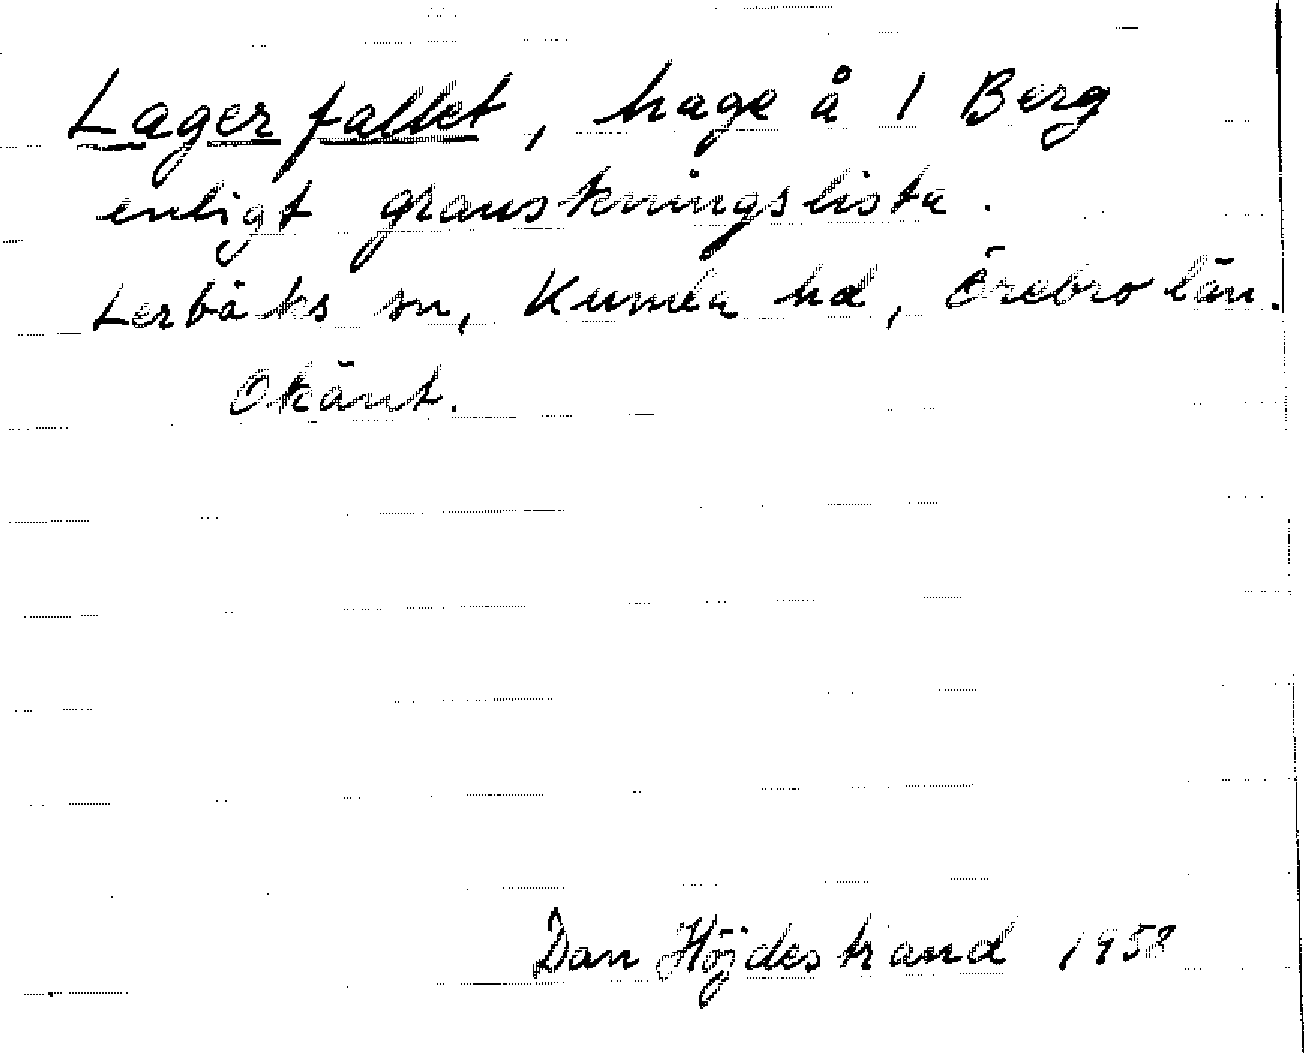 Lagerfallet, hage å 1 Berg
enligt granskningslista.
Lerbäks sn, Kumla hd, Örebro län.
Okänt.
Dan Höjdestrand 1958